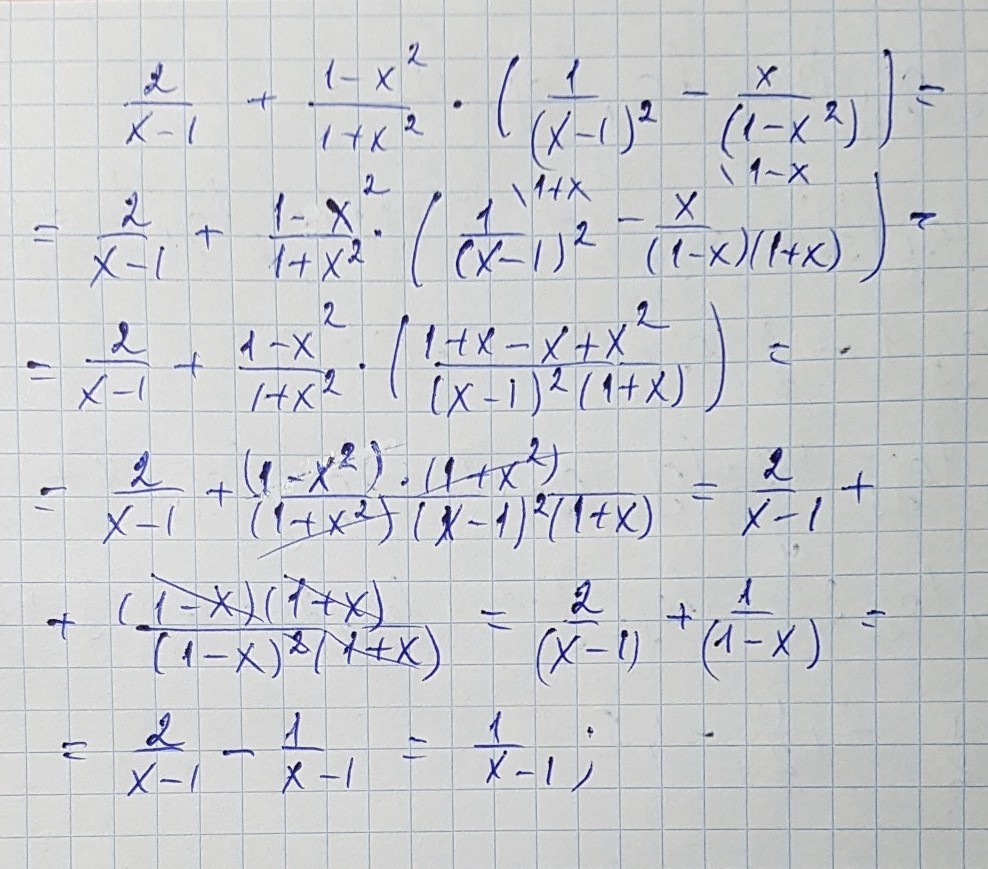 2/(x-1) + (1-x²)/(1+x²) · (1/(x-1)² - x/(1-x²)) =
= 2/(x-1) + (1-x²)/(1+x²) · (1\1+x/(x-1)² - x\1-x/((1-x)(1+x))) =
= 2/(x-1) + (1-x²)/(1+x²) · ((1+x-x+x²)/((x-1)²(1+x))) =
= 2/(x-1) + ((1-x²)·(1+x²))/((1+x²)(x-1)²(1+x)) = 2/(x-1) +
+ ((1-x)(1+x))/((1-x)²(1+x)) = 2/(x-1) + 1/(1-x) =
= 2/(x-1) - 1/(x-1) = 1/(x-1);